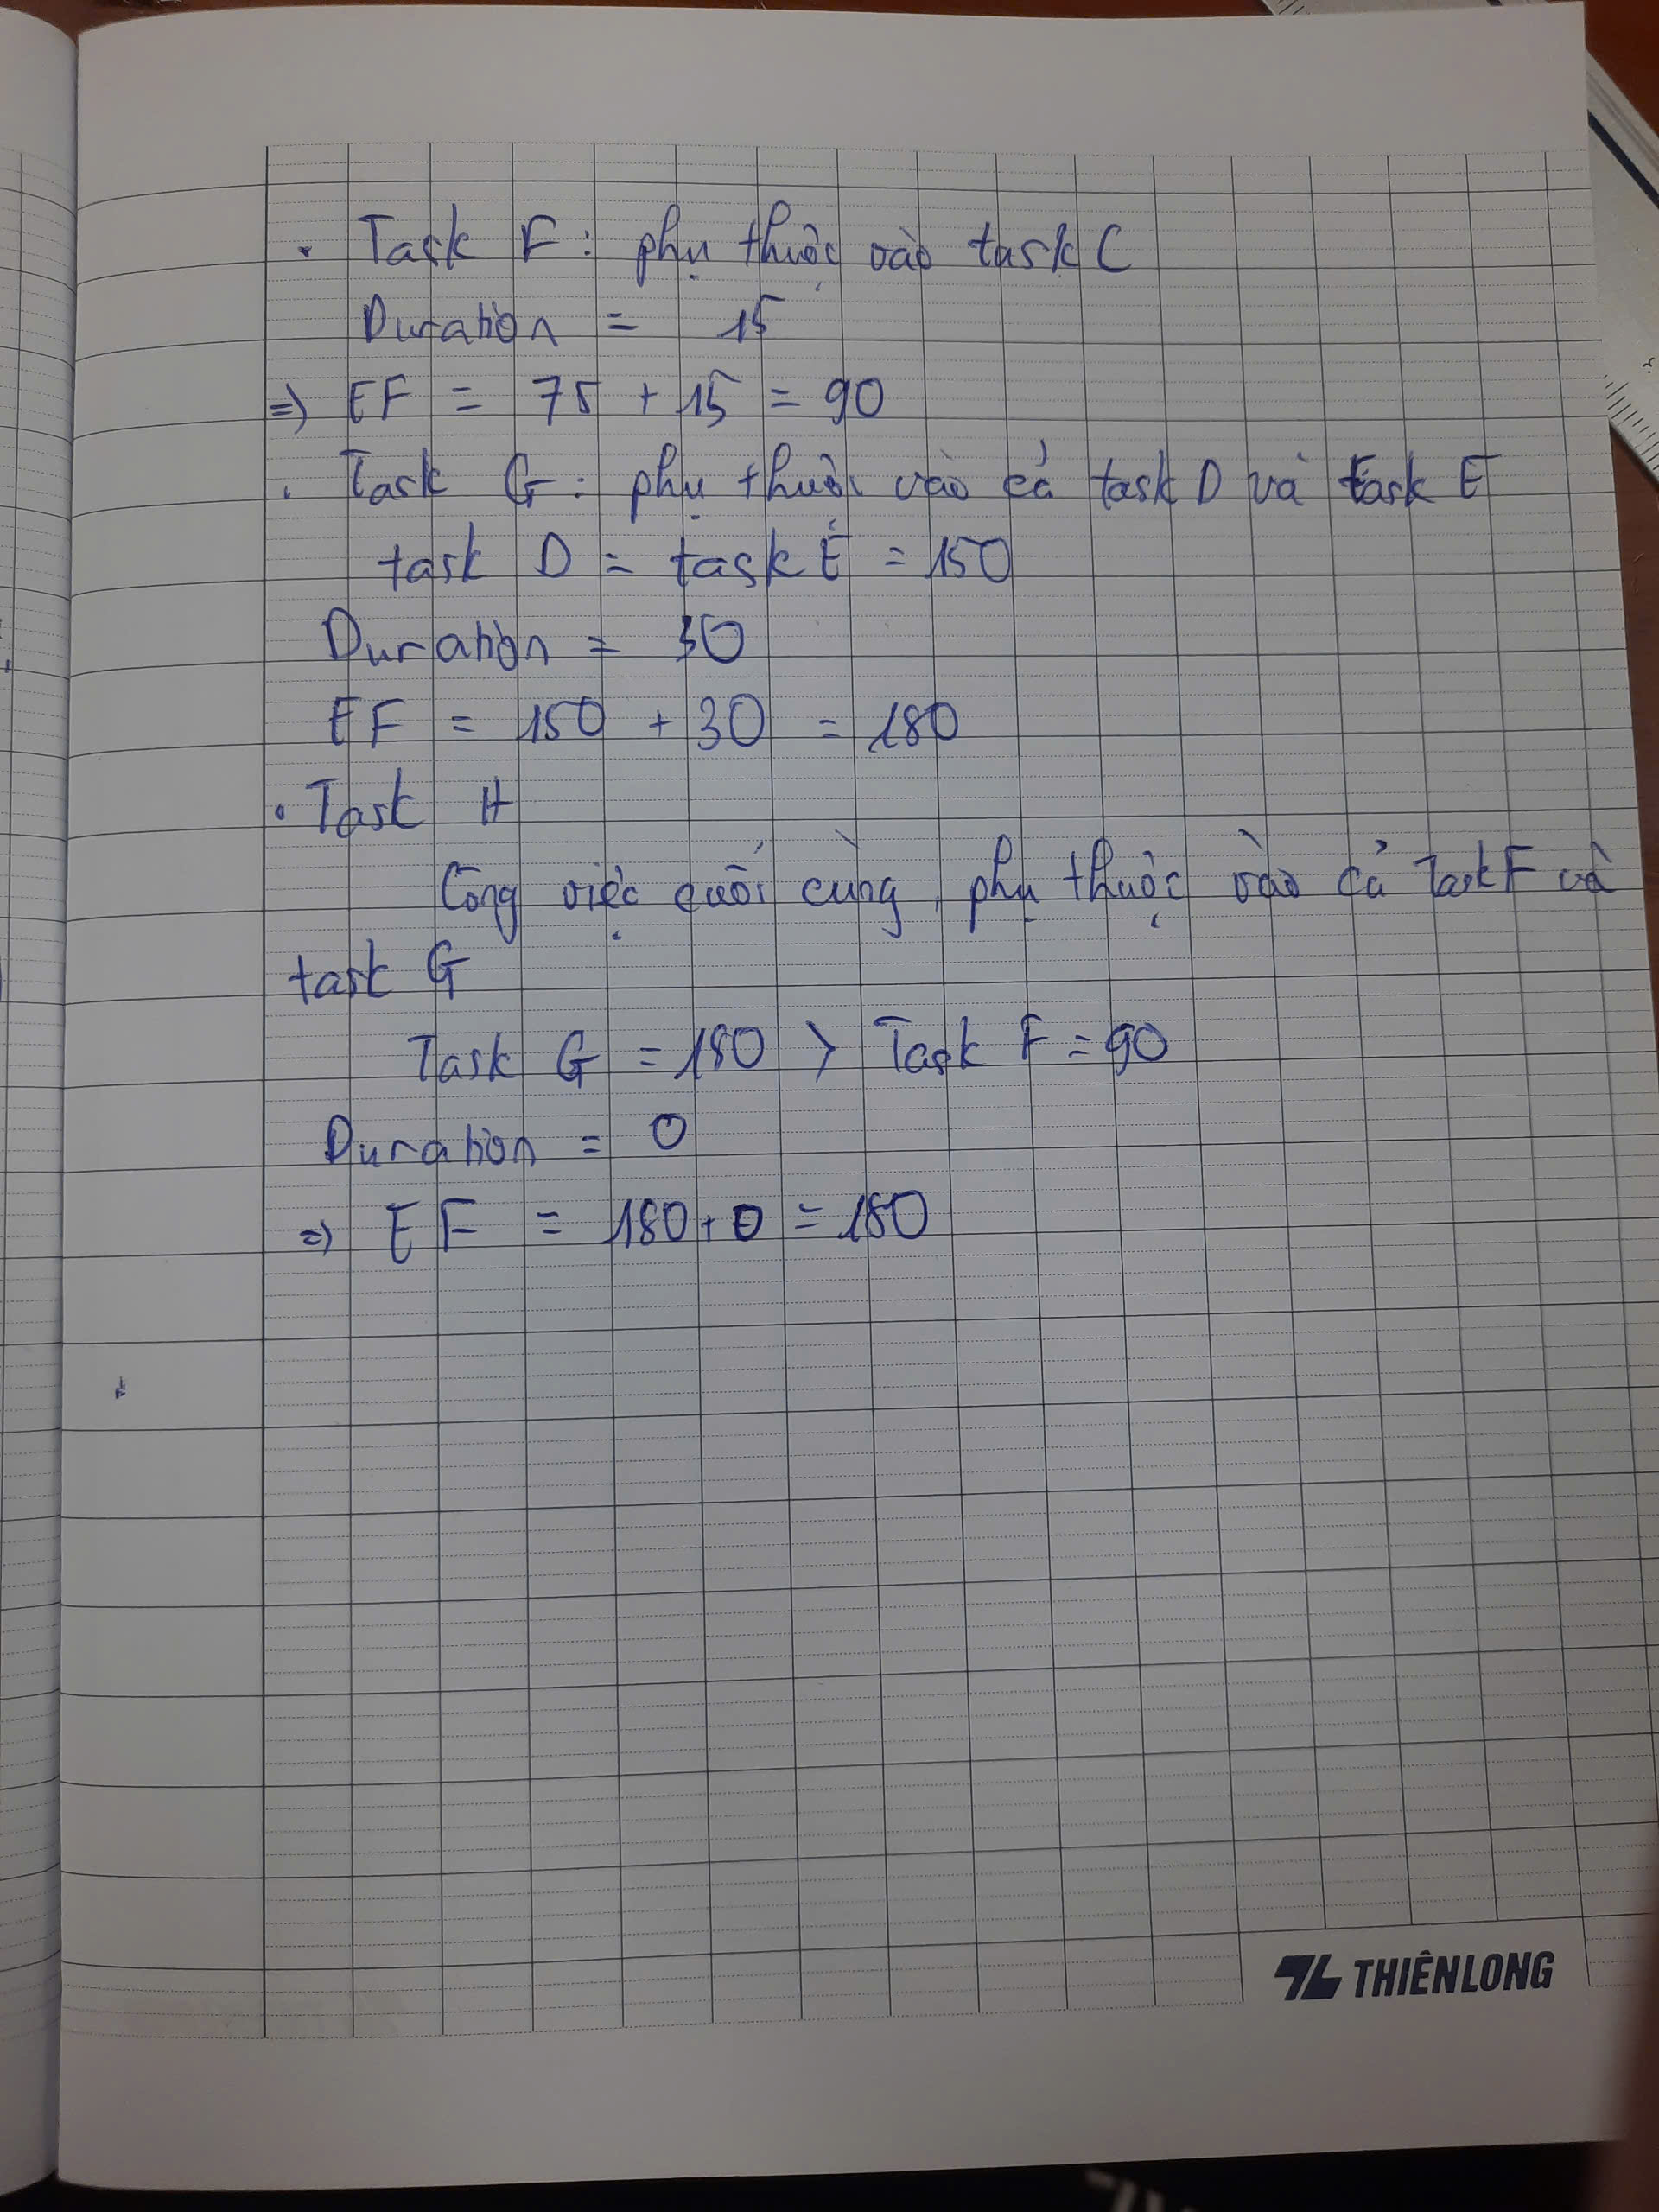 . Task F : phụ thuộc vào task C
Duration = 15
=) EF = 75 + 15 = 90
. Task G : phụ thuộc vào cả task D và task E
task D = task E = 150
Duration = 30
EF = 150 + 30 = 180
. Task H
Công việc cuối cùng , phụ thuộc vào cả Task F và
task G
Task G = 180 > Task F = 90
Duration = 0
=) EF = 180 + 0 = 180
THIÊN LONG